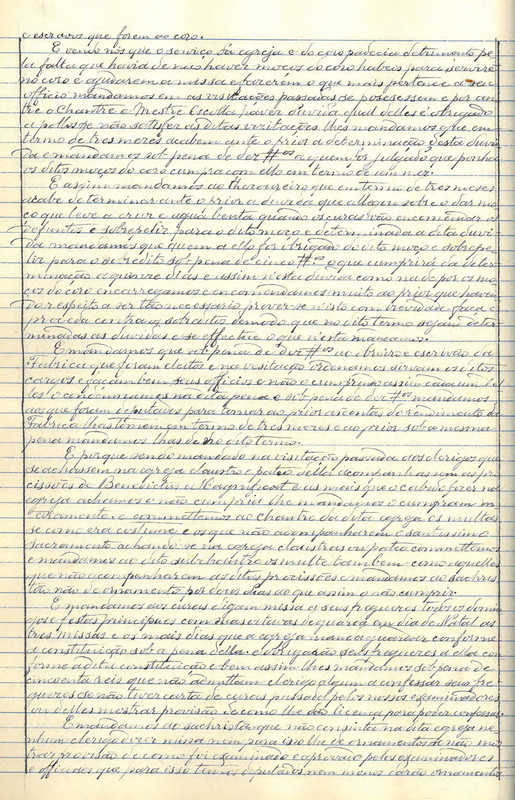 e escravos que forem ao coro.
E vendo nós que o serviço da igreja e do coro padecia detrimento pe-
la falta que havia de não haver moços do coro habeis para servirem
no coro e ajudarem a missa e fazerem o que mais pertence a seu
officio mandamos em as visitações passadas se posessem e por en-
tre o Chantre e Mestre Escolla haver duvida qual delles é obrigado
a pollos e não satisfez ás ditas vizitações lhes mandamos que em
termo de tres meses acabem ante o prior a determinação desta duvi-
da e mandamos sob pena de dez a quem for julgado que ponha
os ditos moços do coro cumpra com ello em termo de um mez.
E assim mandamos ao thesoureiro que em termo de tres meses
acabe de terminar ante o prior a duvida que allegou sobre o dar mo-
ço que leve a cruz e agua benta quando os curas vão encomendar os
defuntos e sobrepeliz para o dito moço e determinada a dita duvi-
da mandamos que quem a ello for obrigado dê o dito moço e sobrepe-
liz para o sob pena de cinco o que cumprirá da deter-
minação a quinze dias e assim nesta duvida como na de por os mo-
ços do coro encarregamos e encomendamos muito ao prior que haven-
do respeito a ser tão necessario prover-se nisto com brevidade faça e
proceda contra os sobreditos de modo que no dito termo sejam deter-
minadas as duvidas e se effectue o que nesta mandamos.
E mandamos que sob pena de dez ao obreiro e escrivão da
Fabrica que foram eleitos e na visitação ordenamos sirvam os ditos
cargos e façam bem seus officios e não o cumprindo assim cada um del-
les o condemnamos na dita pena e sob pena de dez mandamos
aos que foram deputados para tomar ao prior as contas do rendimento da
Fabrica lhas tomem em termo de tres meses e ao prior sob a mesma
pena mandamos lhas dê no dito termo.
E porque sendo mandado na visitação passada aos clerigos que
se achassem na egreja claustro e pateo della acompanhassem as pro-
cissões do Benedictus e Magnificat e as mais que o cabido fizer na
egreja achamos o não cumprirem lhe mandamos o cumpram in-
teiramente e commettemos ao chantre da dita egreja os multas-
se como era costume e os que não acompanharem o santissimo
sacramento achando-se na egreja claustra ou pateo commettemos
e mandamos ao dito subchantre os multe tambem como aquelles
que não acompanharam as ditas procissões e mandamos ao sachris-
tão não dê ornamento por dois dias ao que assim o não cumprir.
E mandamos aos curas digam missa a seus freguezes todos os domin-
gos e festas principaes com as oitavas de quaresma e em dia de Natal as
tres missas e os mais dias que a egreja manda guardar conforme
a constituição sob a pena della e obrigarão seus freguezes a ella con-
forme a dita constituição e bem assim lhes mandamos sob pena de
cincoenta reis que não admittam clerigo algum a confessar seus fre-
guezes se não tiver carta de curas passada pelos nossos examinadores
ou delles mostrar provisão de como lhe dão licença para poder confessar.
E mandamos ao sachristão que não consinta na dita egreja ne-
nhum clerigo dizer missa nem para isso lhe dê ornamentos se não mos-
trar provisão de como foi examinado e aprovado pelos examinadores
e officiaes que para isso temos deputados nem menos darão ornamentos